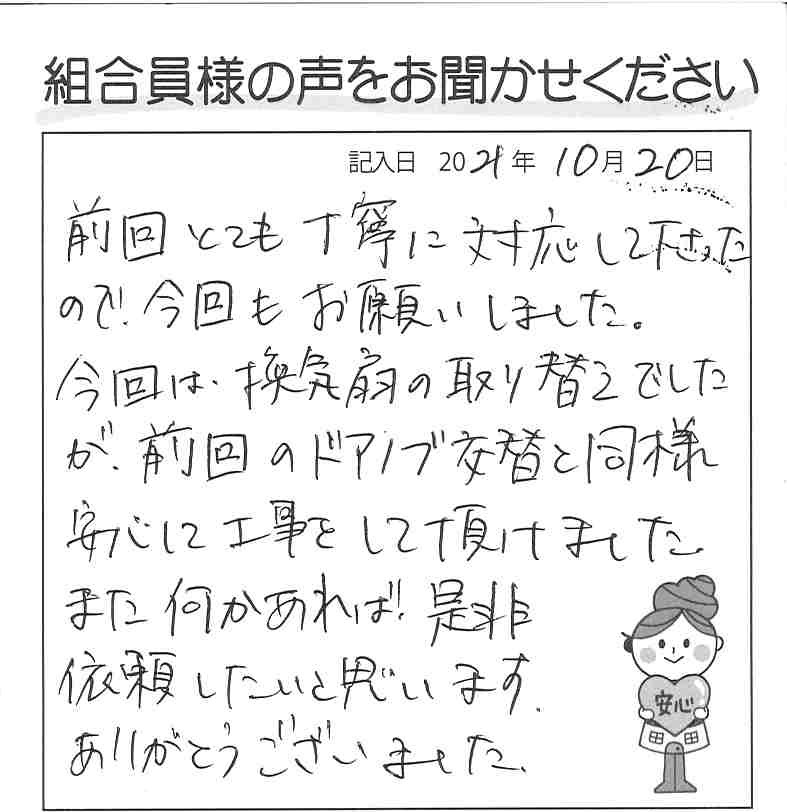 組合員様の声をお聞かせください
記入日 2021年 10月20日
前回とても丁寧に対応して下さった
ので、今回もお願いしました。
今回は、換気扇の取り替えでした
が、前回のドアノブ交替と同様
安心して工事をして頂けました
また何かあれば、是非
依頼したいと思います。
ありがとうございました。
安心